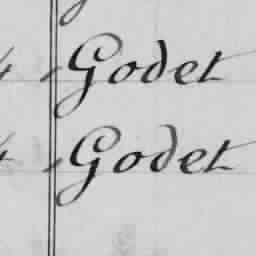 4 Godet
4 Godet